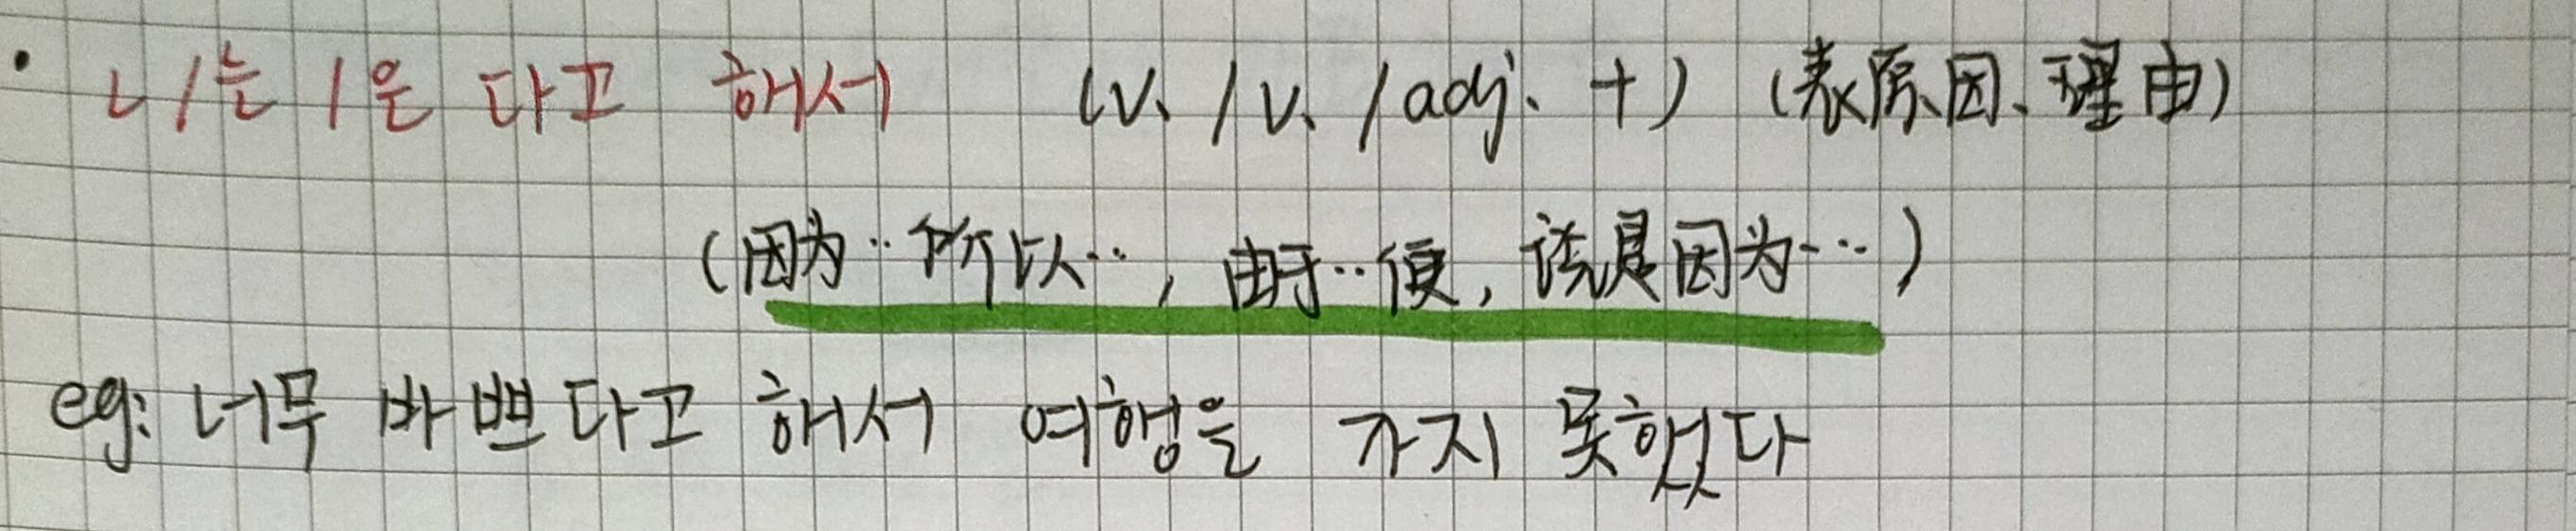 · ㄴ/는/은 다고 해서 (v. /v. /adj. +) (表原因、理由)
(因为··所以··, 由于··便, 说是因为···)
eg: 너무 바쁘다고 해서 여행을 가지 못했다